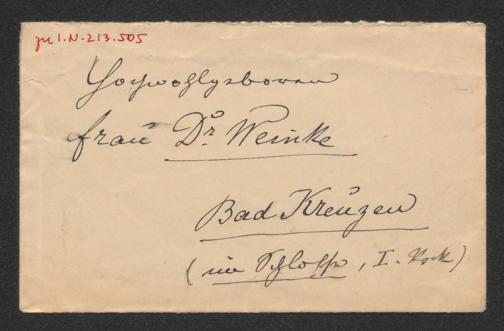 zu I.N. 213.505
Hochwohlgeboren
Frau Dr. Weinke
Bad Kreuzen
(im Schlosse, I. Stock)